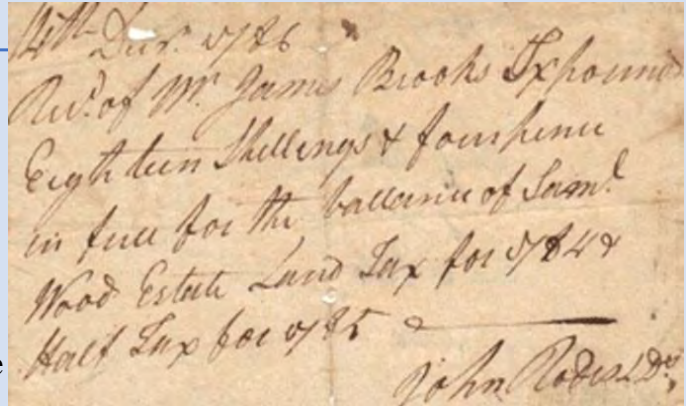 14th Decr. 1786
Recd. of Mr. James Brooks Six pounds
Eighteen Shillings & four pence
in full for the ballance of Saml.
Wood Estate Land Tax for 1784 &
Half Tax for 1785
John Rodes D.
e